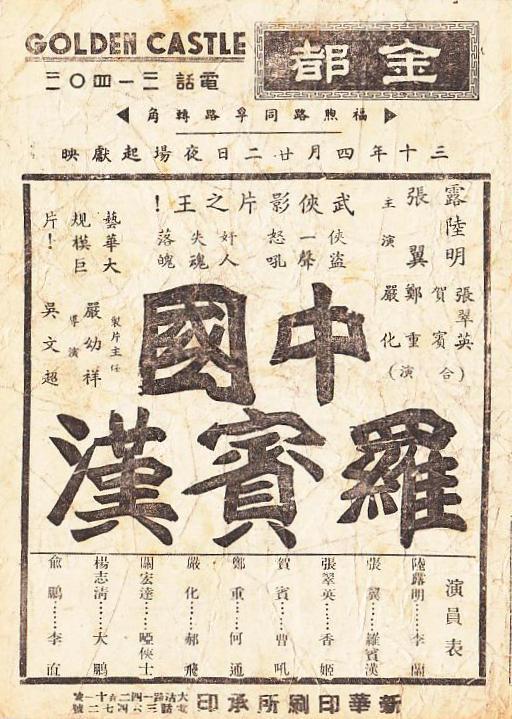 GOLDEN CASTLE
金都
電話三一四〇三
福煦路同孚路轉角
三十年四月廿二日夜場起獻映
武俠影片之王！
俠盜一聲怒吼
奸人失魂落魄
藝華大規模巨片！
主演
張翼
陸露明
張翠英
賀賓
鄭重
嚴化
（合演）
製片主任
嚴幼祥
導演
吳文超
中國
羅賓漢
演員表
陸露明……李蘭
張翼……羅賓漢
張翠英……香姬
賀賓……曹吼
鄭重……何通
嚴化……郝飛
關宏達……啞俠士
楊志清……大鵬
俞鵬……李直
新華印刷所承印